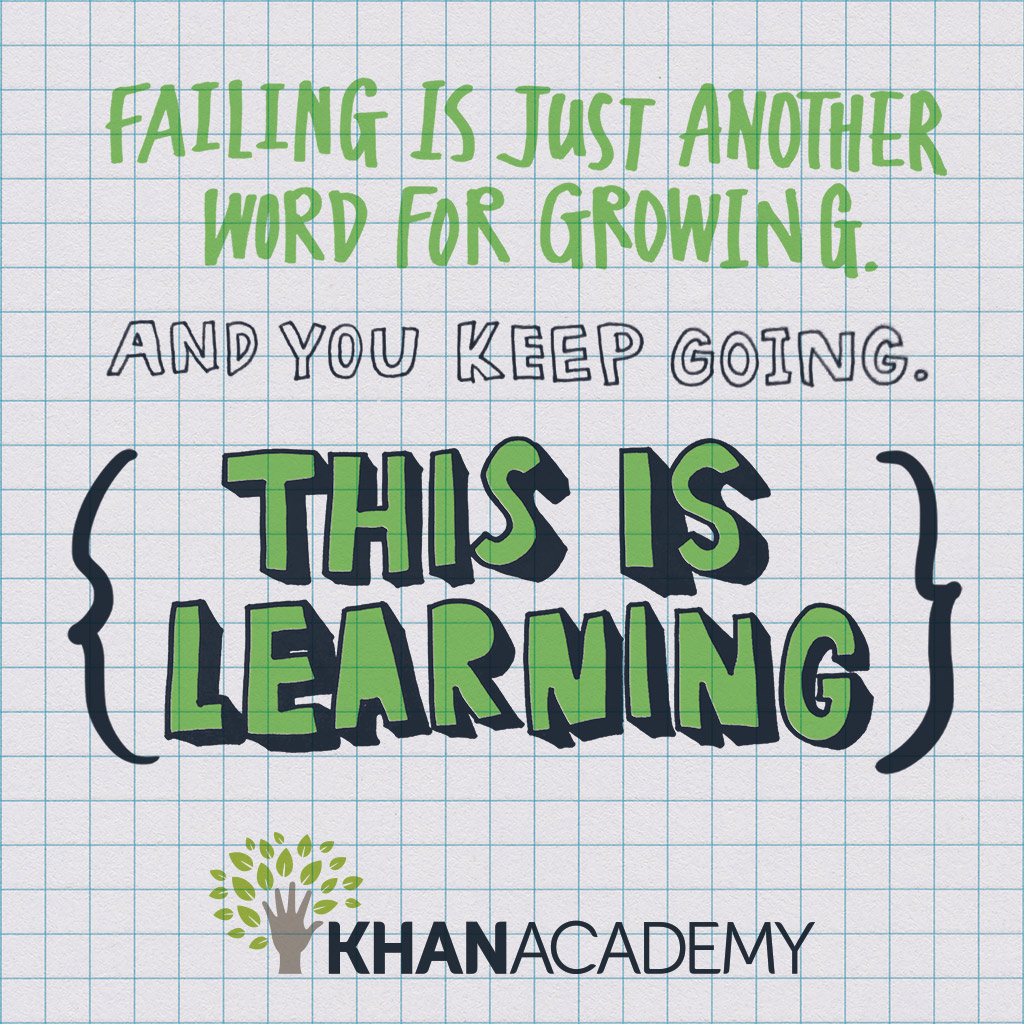 FAILING IS JUST ANOTHER
WORD FOR GROWING.
AND YOU KEEP GOING.
{THIS IS
LEARNING}
KHANACADEMY